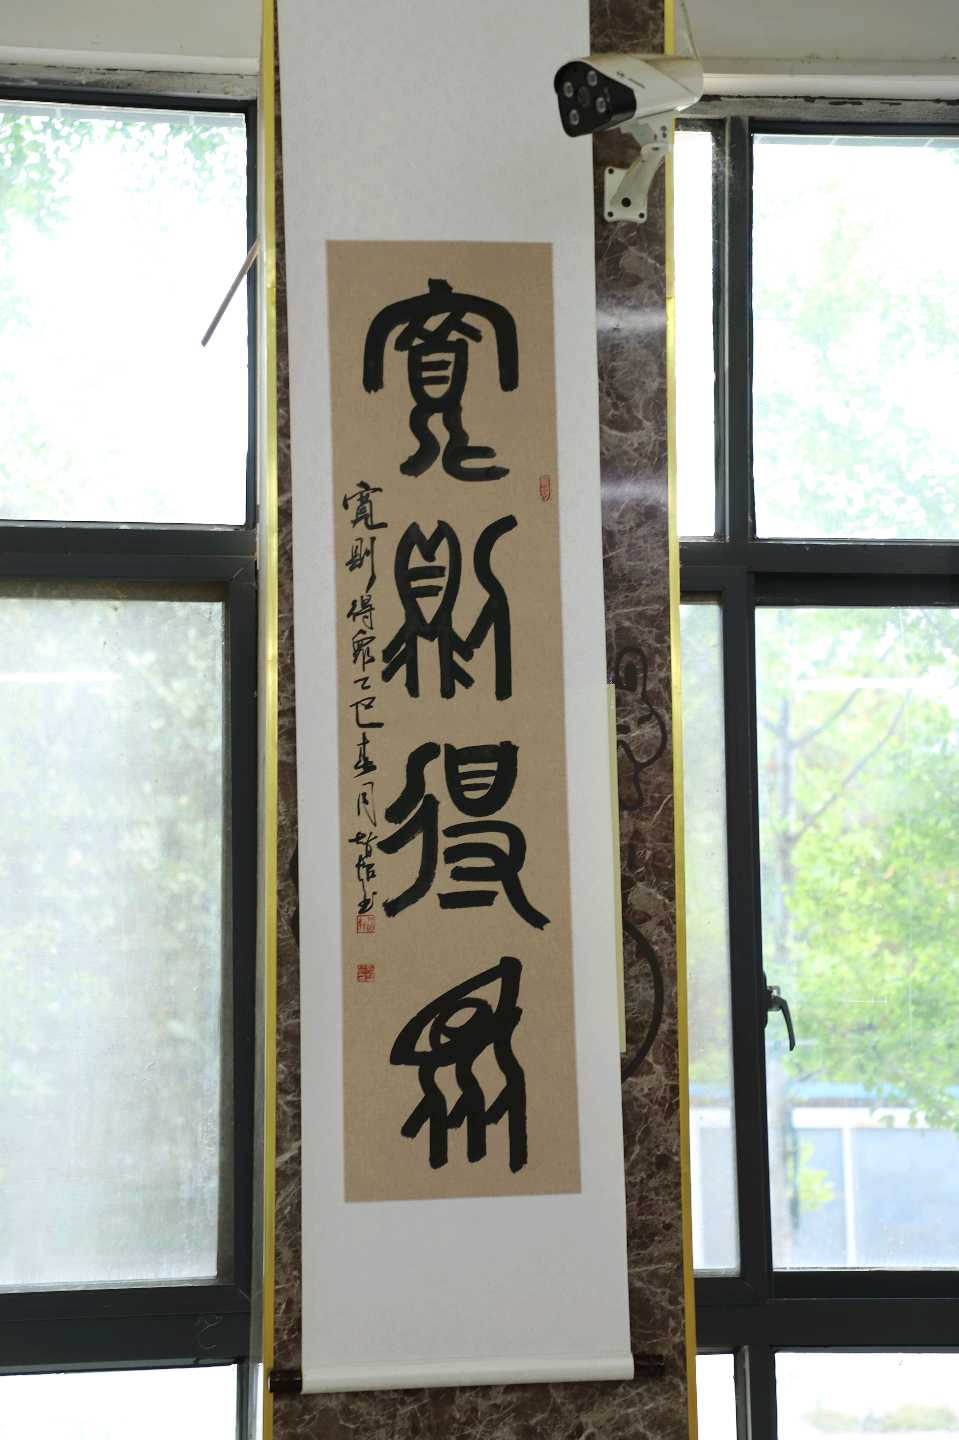 寬則得眾
寬則得眾乙巳春月